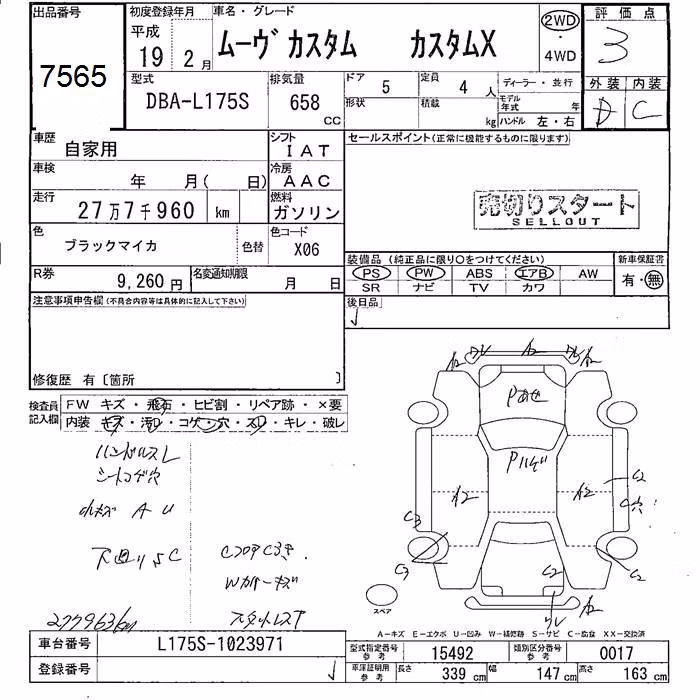 出品番号
7565
初度登録年月
平成
19 2 月
車名・グレード
ムーヴ カスタム カスタムX
2WD
・
4WD
評価点
3
外装 内装
D C
型式
DBA-L175S
排気量
658
CC
ドア
5
形状
定員
4 人
積載
kg
ディーラー・並行
モデル年式 年
ハンドル 左・右
車歴
自家用
シフト
IAT
車検
年 月( 日)
冷房
AAC
走行
27万7千960 km
燃料
ガソリン
色
ブラックマイカ
色替
色コード
X06
R券
9,260円
名変通知期限
月 日
セールスポイント(正常に機能するものに限ります)
売切りスタート
SELLOUT
装備品 (純正品に限り○をつけてください)
PS PW ABS エアB AW
SR ナビ TV カワ
新車保証書
有・無
注意事項申告欄(不具合内容等は具体的に記入して下さい)
修復歴 有〔箇所 〕
後日品
検査員記入欄
FW キズ・飛石・ヒビ割・リペア跡・×要
内装 キズ・汚レ・コゲ・穴・スレ・キレ・破レ
ハンドルスレ
シートコゲ穴
A U
下廻りSC
CコアC3キ
277963km
A2
A2
A2
Pあせ
Pハゲ
A2
A2
C2
C穴
C3
C3
C2
C2
A2
スペア
A-キズ E-エクボ U-凹み W-補修跡 S-サビ C-腐食 XX-交換済
車台番号
L175S-1023971
登録番号
型式指定番号
参考
15492
類別区分番号
参考
0017
車庫証明用
参考
長さ 339 cm 幅 147 cm 高さ 163 cm